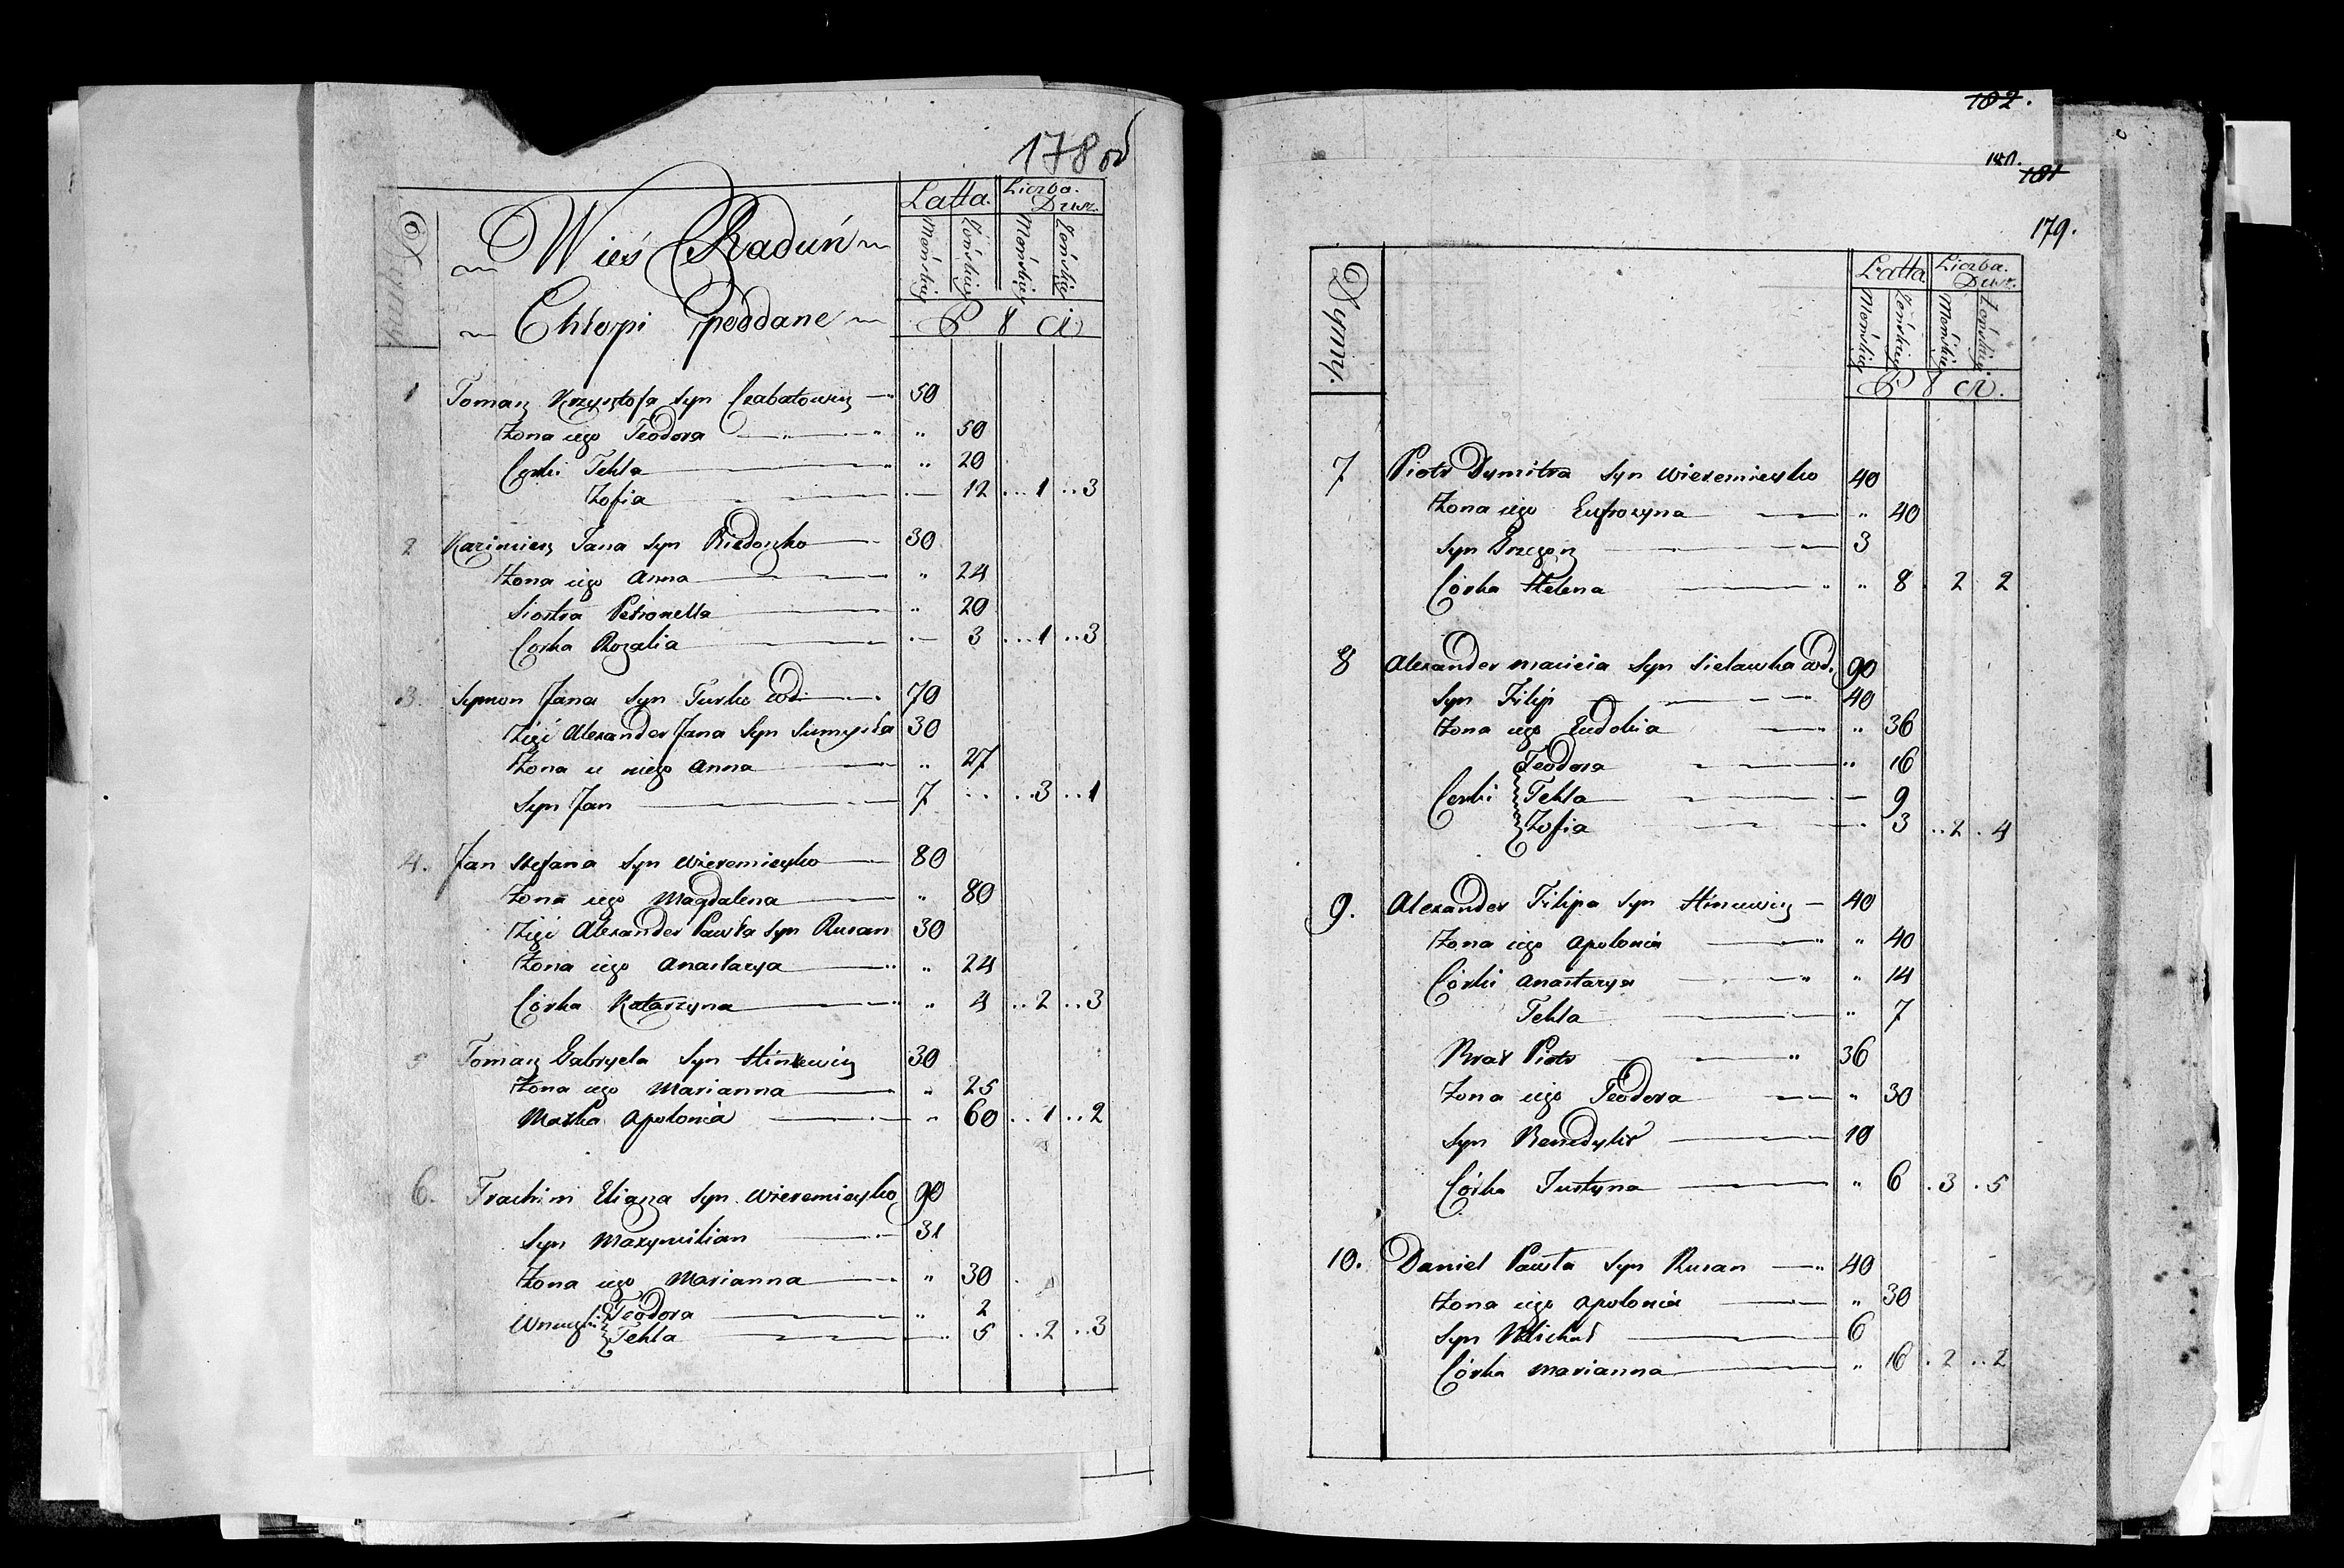 178 od
Dymy
Wieś Raduń
Chłopi poddane
Latta. Liczba. Dusz.
Męskiej Żeńskiej Męskiej Żeńskiej
P ł ci
1 Tomasz Krzysztofa syn Czabatowicz 50
Żona iego Teodora " 50
Corki Tekla " 20
Zofia 12 1 3
2 Kazimierz Jana syn Biedonko 30
Żona iego Anna " 24
Siostra Petronella " 20
Corka Rozalia 3 1 3
3. Symon Jana syn Turko wd. 70
Zięć Alexander Jana syn 30
Żona u niego Anna " 27
Syn Jan 7 3 1
4. Jan Stefana syn Wieremieyko 80
Żona iego Magdalena " 80
Zięć Alexander Pawła syn Rusan 30
Żona iego Anastazya " 24
Córka Katarzyna " 4 2 3
5 Tomasz Gabryela syn Hinkewicz 30
Żona iego Marianna " 25
Matka Apolonia " 60 1 2
6. Trachim Eliasza syn Wieremieyko 90
Syn Maxymilian 31
Żona iego Marianna " 30
Wnuczki Teodora " 2
Tekla 5 2 3
182.
180.
181
179.
Dymy.
Latta Liczba. Dusz.
Męskiej Żeńskiej Męskiej Żeńskiej
P ł ci.
7 Piotr Dymitra syn Wieremieyko 40
Żona iego Eufrozyna " 40
Syn Grzegorz 3
Córka Helena " 8 2 2
8 Alexander Macieia syn Sielawka wd. 90
Syn Filip 40
Żona iego Eudokia " 36
Teodora " 16
Corki Tekla 9
Zofia 3 2 4
9. Alexander Filipa syn Hincewicz 40
Żona iego Apolonia " 40
Córki Anastazya " 14
Tekla " 7
Brat Piotr 36
Żona iego Teodora " 30
Syn Benedykt 10
Córka Justyna " 6 3 5
10. Daniel Pawła syn Rusan 40
Żona iego Apolonia " 30
Syn Michał 6
Córka Marianna " 16 2 2